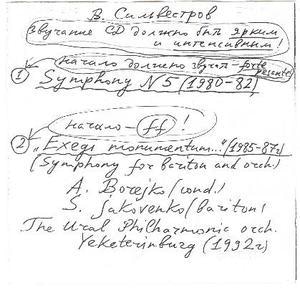 В. Сильвестров
звучание CD должно быть ярким
и интенсивным!
начало должно звучать – forte
① Symphony N5 (1980-82)
начало – ff !
② "Exegi monumentum..." (1985-87г)
(Symphony for bariton and orch.)
A. Borejko (cond.)
S. Jakovenko (bariton)
The Ural Philharmonic orch.
Yeketerinburg (1992г)